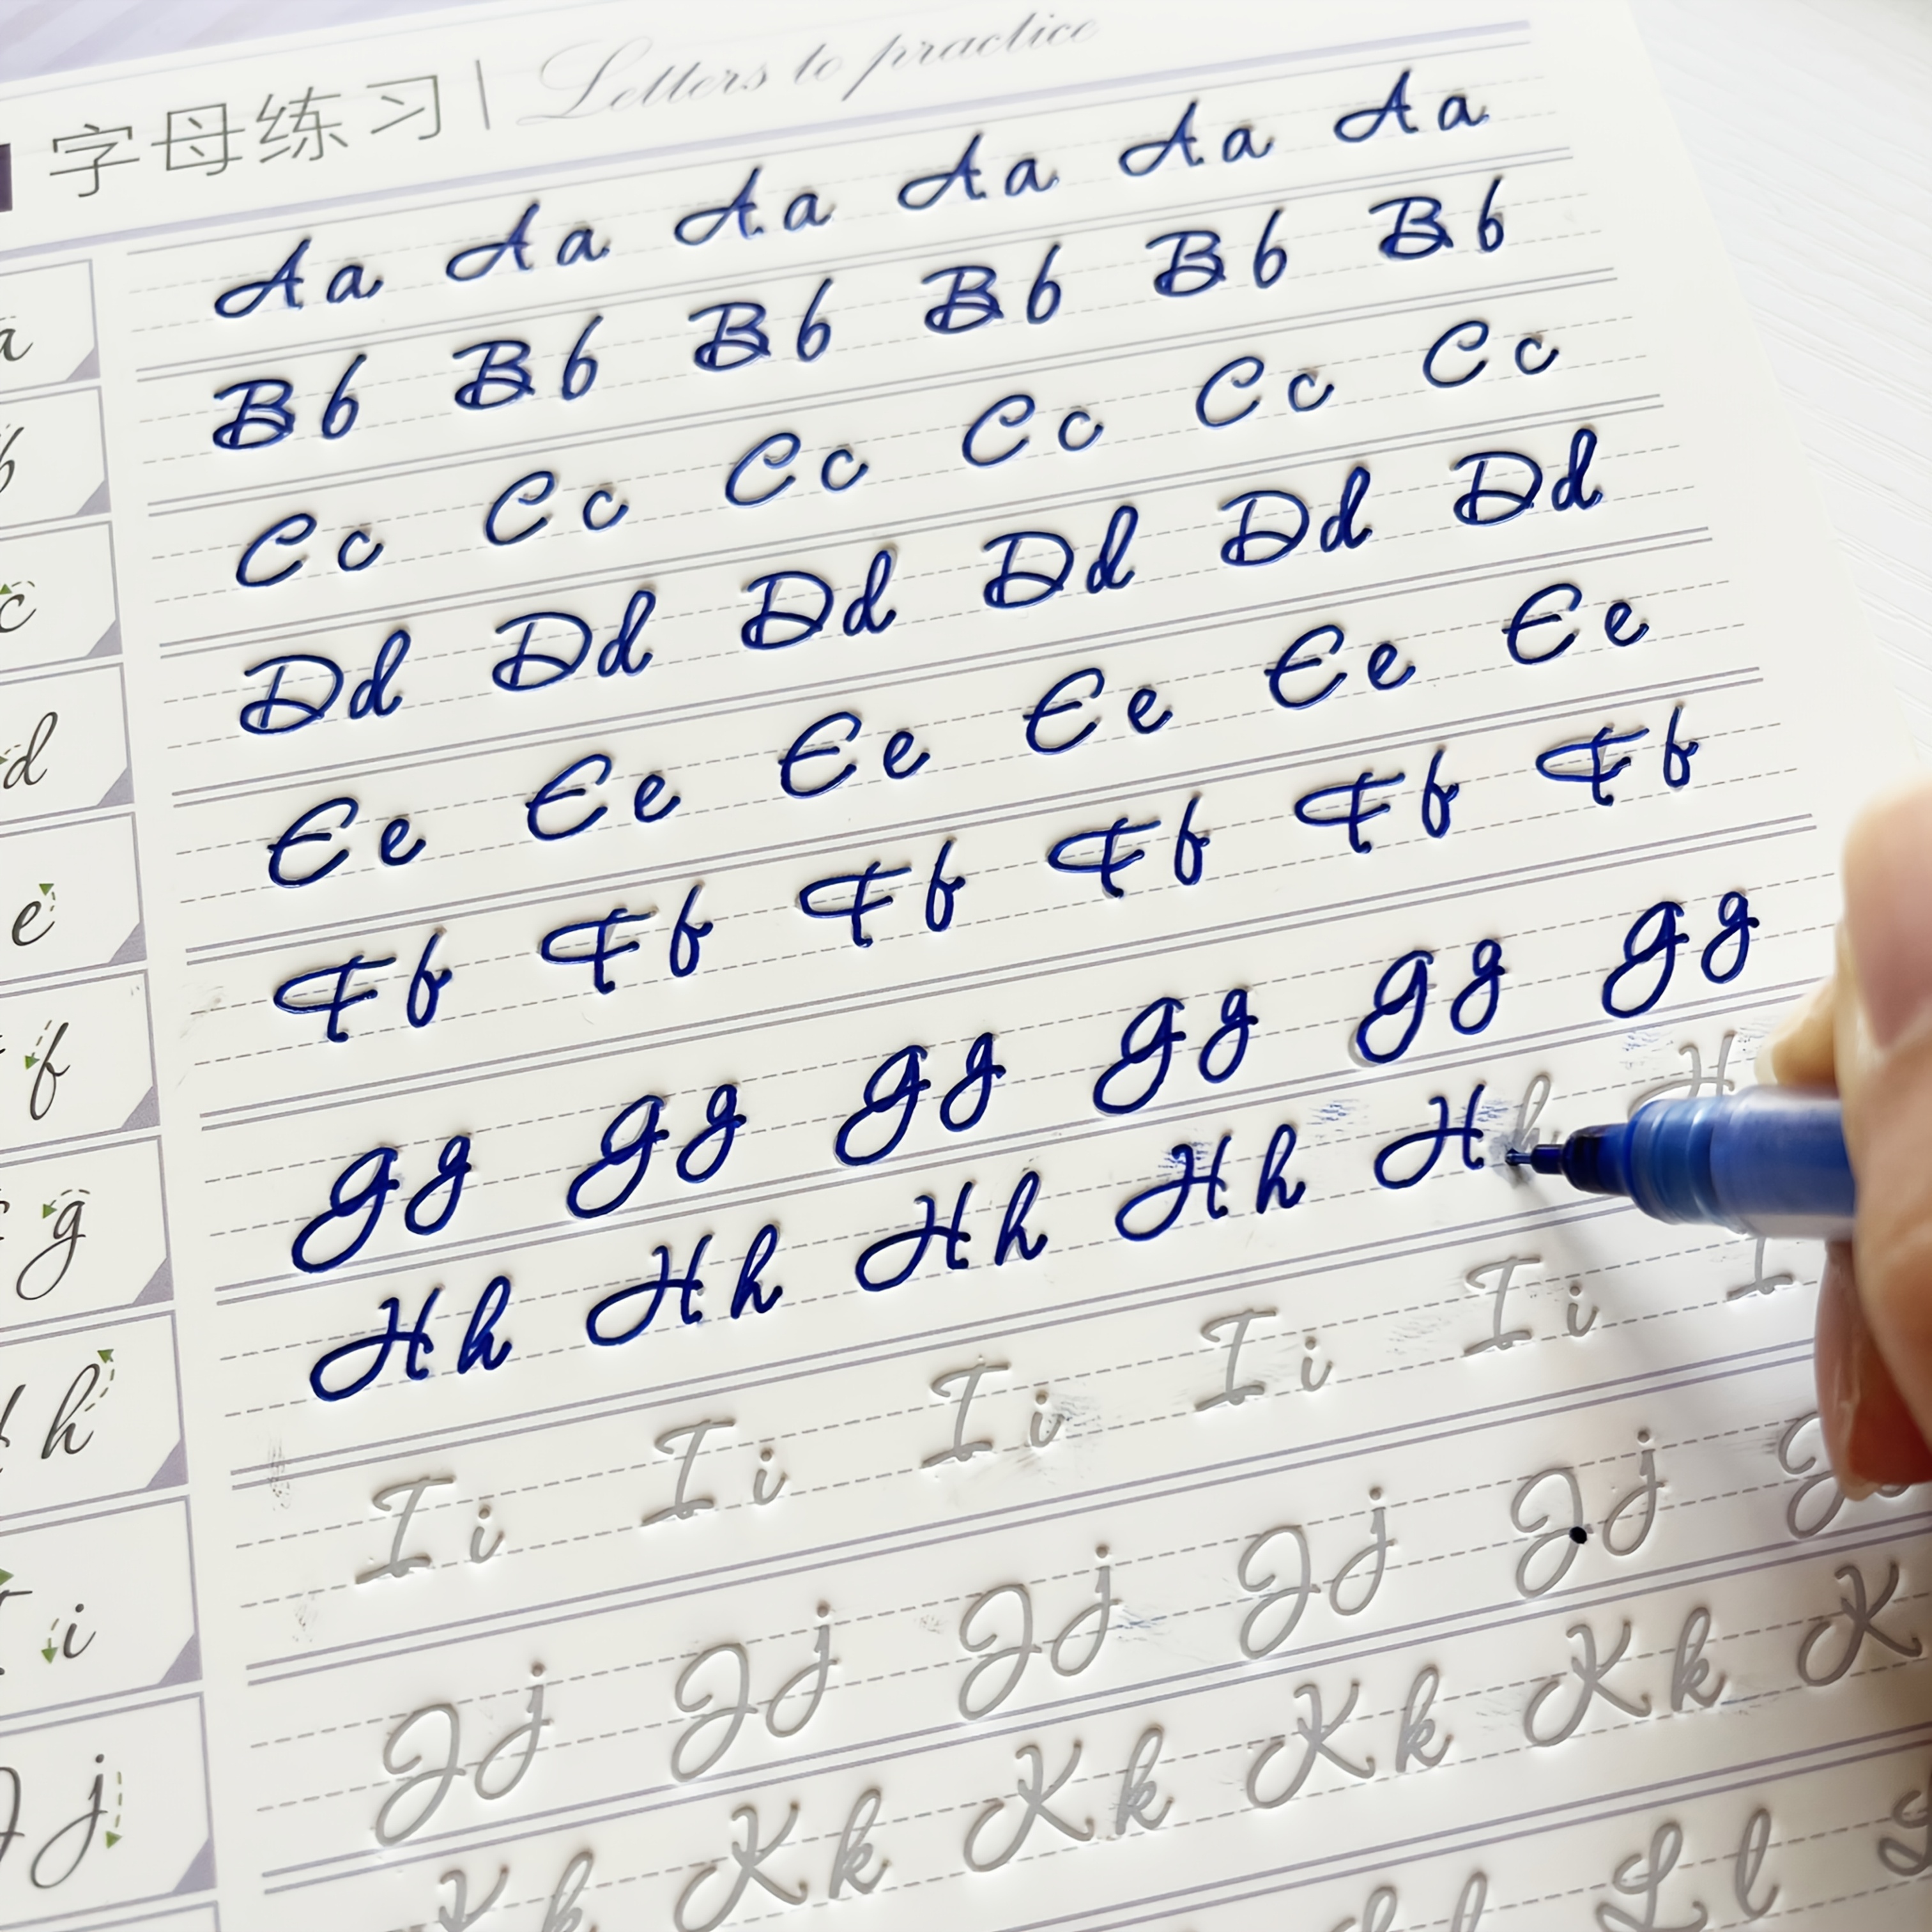 字母练习 | Letters to practice
a Aa Aa Aa Aa Aa Aa
b Bb Bb Bb Bb Bb Bb
c Cc Cc Cc Cc Cc Cc
d Dd Dd Dd Dd Dd Dd
e Ee Ee Ee Ee Ee Ee
f Ff Ff Ff Ff Ff Ff
g Gg Gg Gg Gg Gg Gg
h Hh Hh Hh Hh Hh H
i Ii Ii Ii Ii Ii I
Jj Jj Jj Jj Jj Jj J
Kk Kk Kk Kk Kk K
l Ll